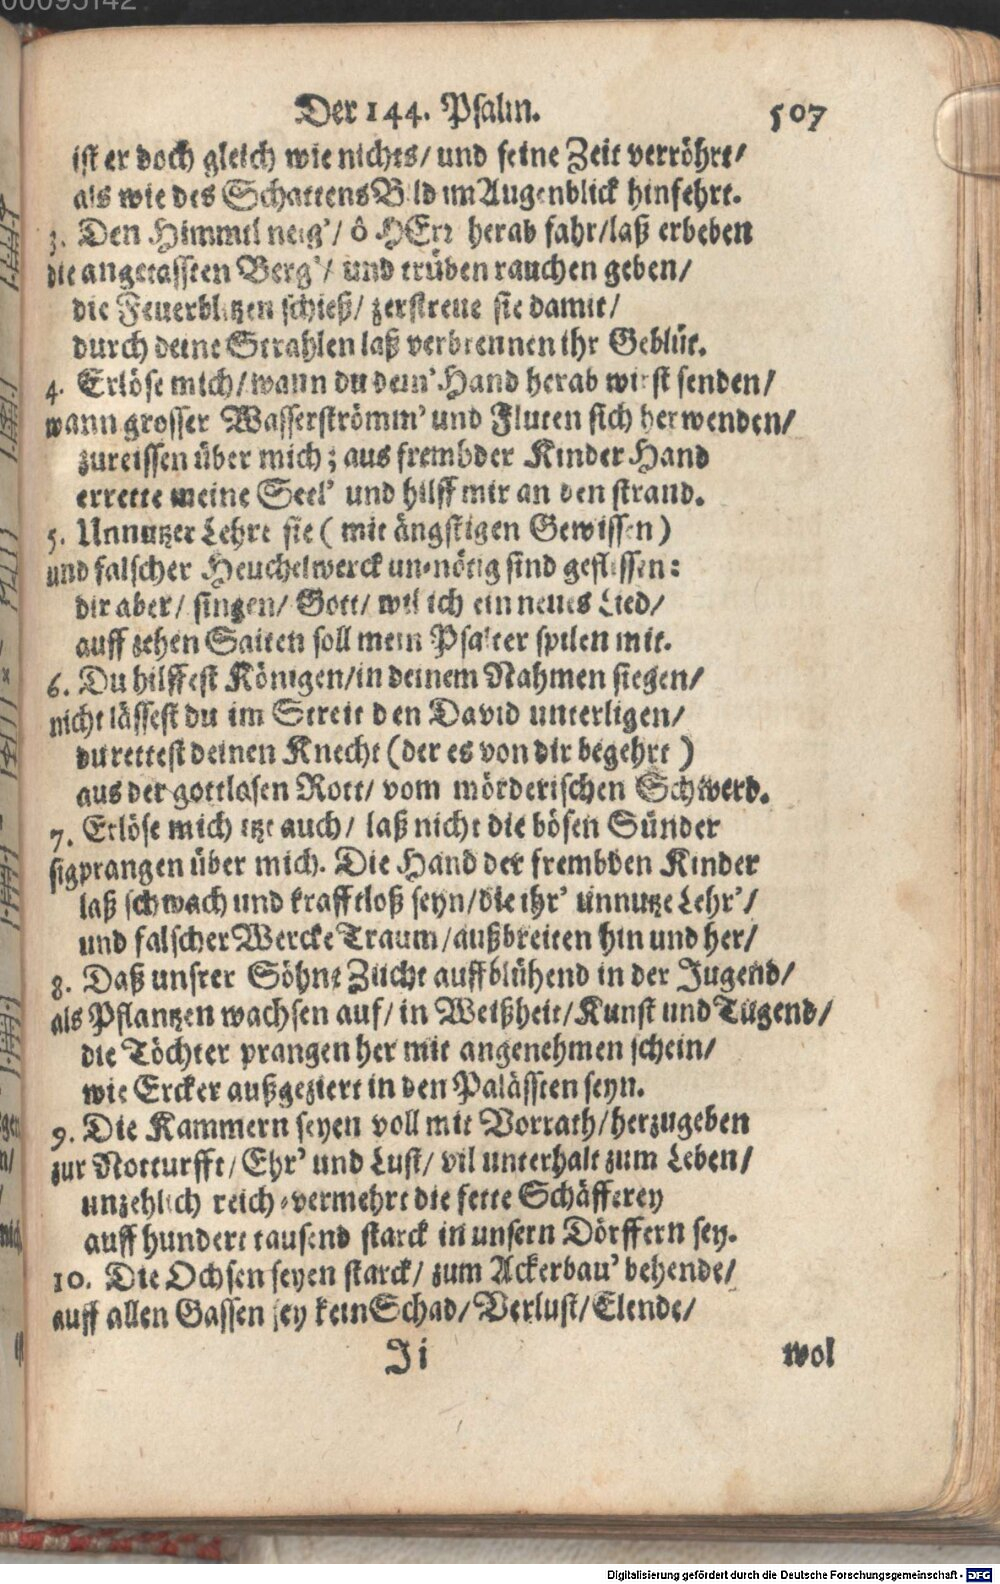 00095142
Der 144. Psalm. 507
ist er doch gleich wie nichts/ und seine Zeit verröhrt/
als wie des Schattens Bild im Augenblick hinfehrt.
3. Den Himmel neig'/ ô HErr herab fahr/laß erbeben
die angetassten Berg'/ und trüben rauchen geben/
die Feuerblitzen schieß/ zerstreue sie damit/
durch deine Strahlen laß verbrennen ihr Geblüt.
4. Erlöse mich/wann du dein' Hand herab wirst senden/
wann grosser Wasserströmm' und Fluten sich herwenden/
zureissen über mich; aus frembder Kinder Hand
errette meine Seel' und hilff mir an den strand.
5. Unnutzer Lehre sie ( mit ängstigen Gewissen )
und falscher Heuchelwerck un-nötig sind geflissen:
dir aber/ singen/ Gott/ wil ich ein neues Lied/
auff zehen Saiten soll mein Psalter spilen mit.
6. Du hilffest Königen/in deinem Nahmen siegen/
nicht lässest du im Streit den David unterligen/
du rettest deinen Knecht (der es von dir begehrt )
aus der gottlasen Rott/ vom mörderischen Schwerd.
7. Erlöse mich itzt auch/ laß nicht die bösen Sünder
sigprangen über mich. Die Hand der frembden Kinder
laß schwach und krafftloß seyn/die ihr' unnutze Lehr'/
und falscher Wercke Traum/außbreiten hin und her/
8. Daß unsrer Söhne Zucht auffblühend in der Jugend/
als Pflantzen wachsen auf/ in Weißheit/Kunst und Tugend/
die Töchter prangen her mit angenehmen schein/
wie Ercker außgeziert in den Palässten seyn.
9. Die Kammern seyen voll mit Vorrath/herzugeben
zur Notturfft/Ehr' und Lust/ vil unterhalt zum Leben/
unzehlich reich-vermehrt die fette Schäfferey
auff hundert tausend starck in unsern Dörffern sey.
10. Die Ochsen seyen starck/ zum Ackerbau' behende/
auff allen Gassen sey kein Schad/Verlust/Elende/
Ji wol
Digitalisierung gefördert durch die Deutsche Forschungsgemeinschaft - DFG